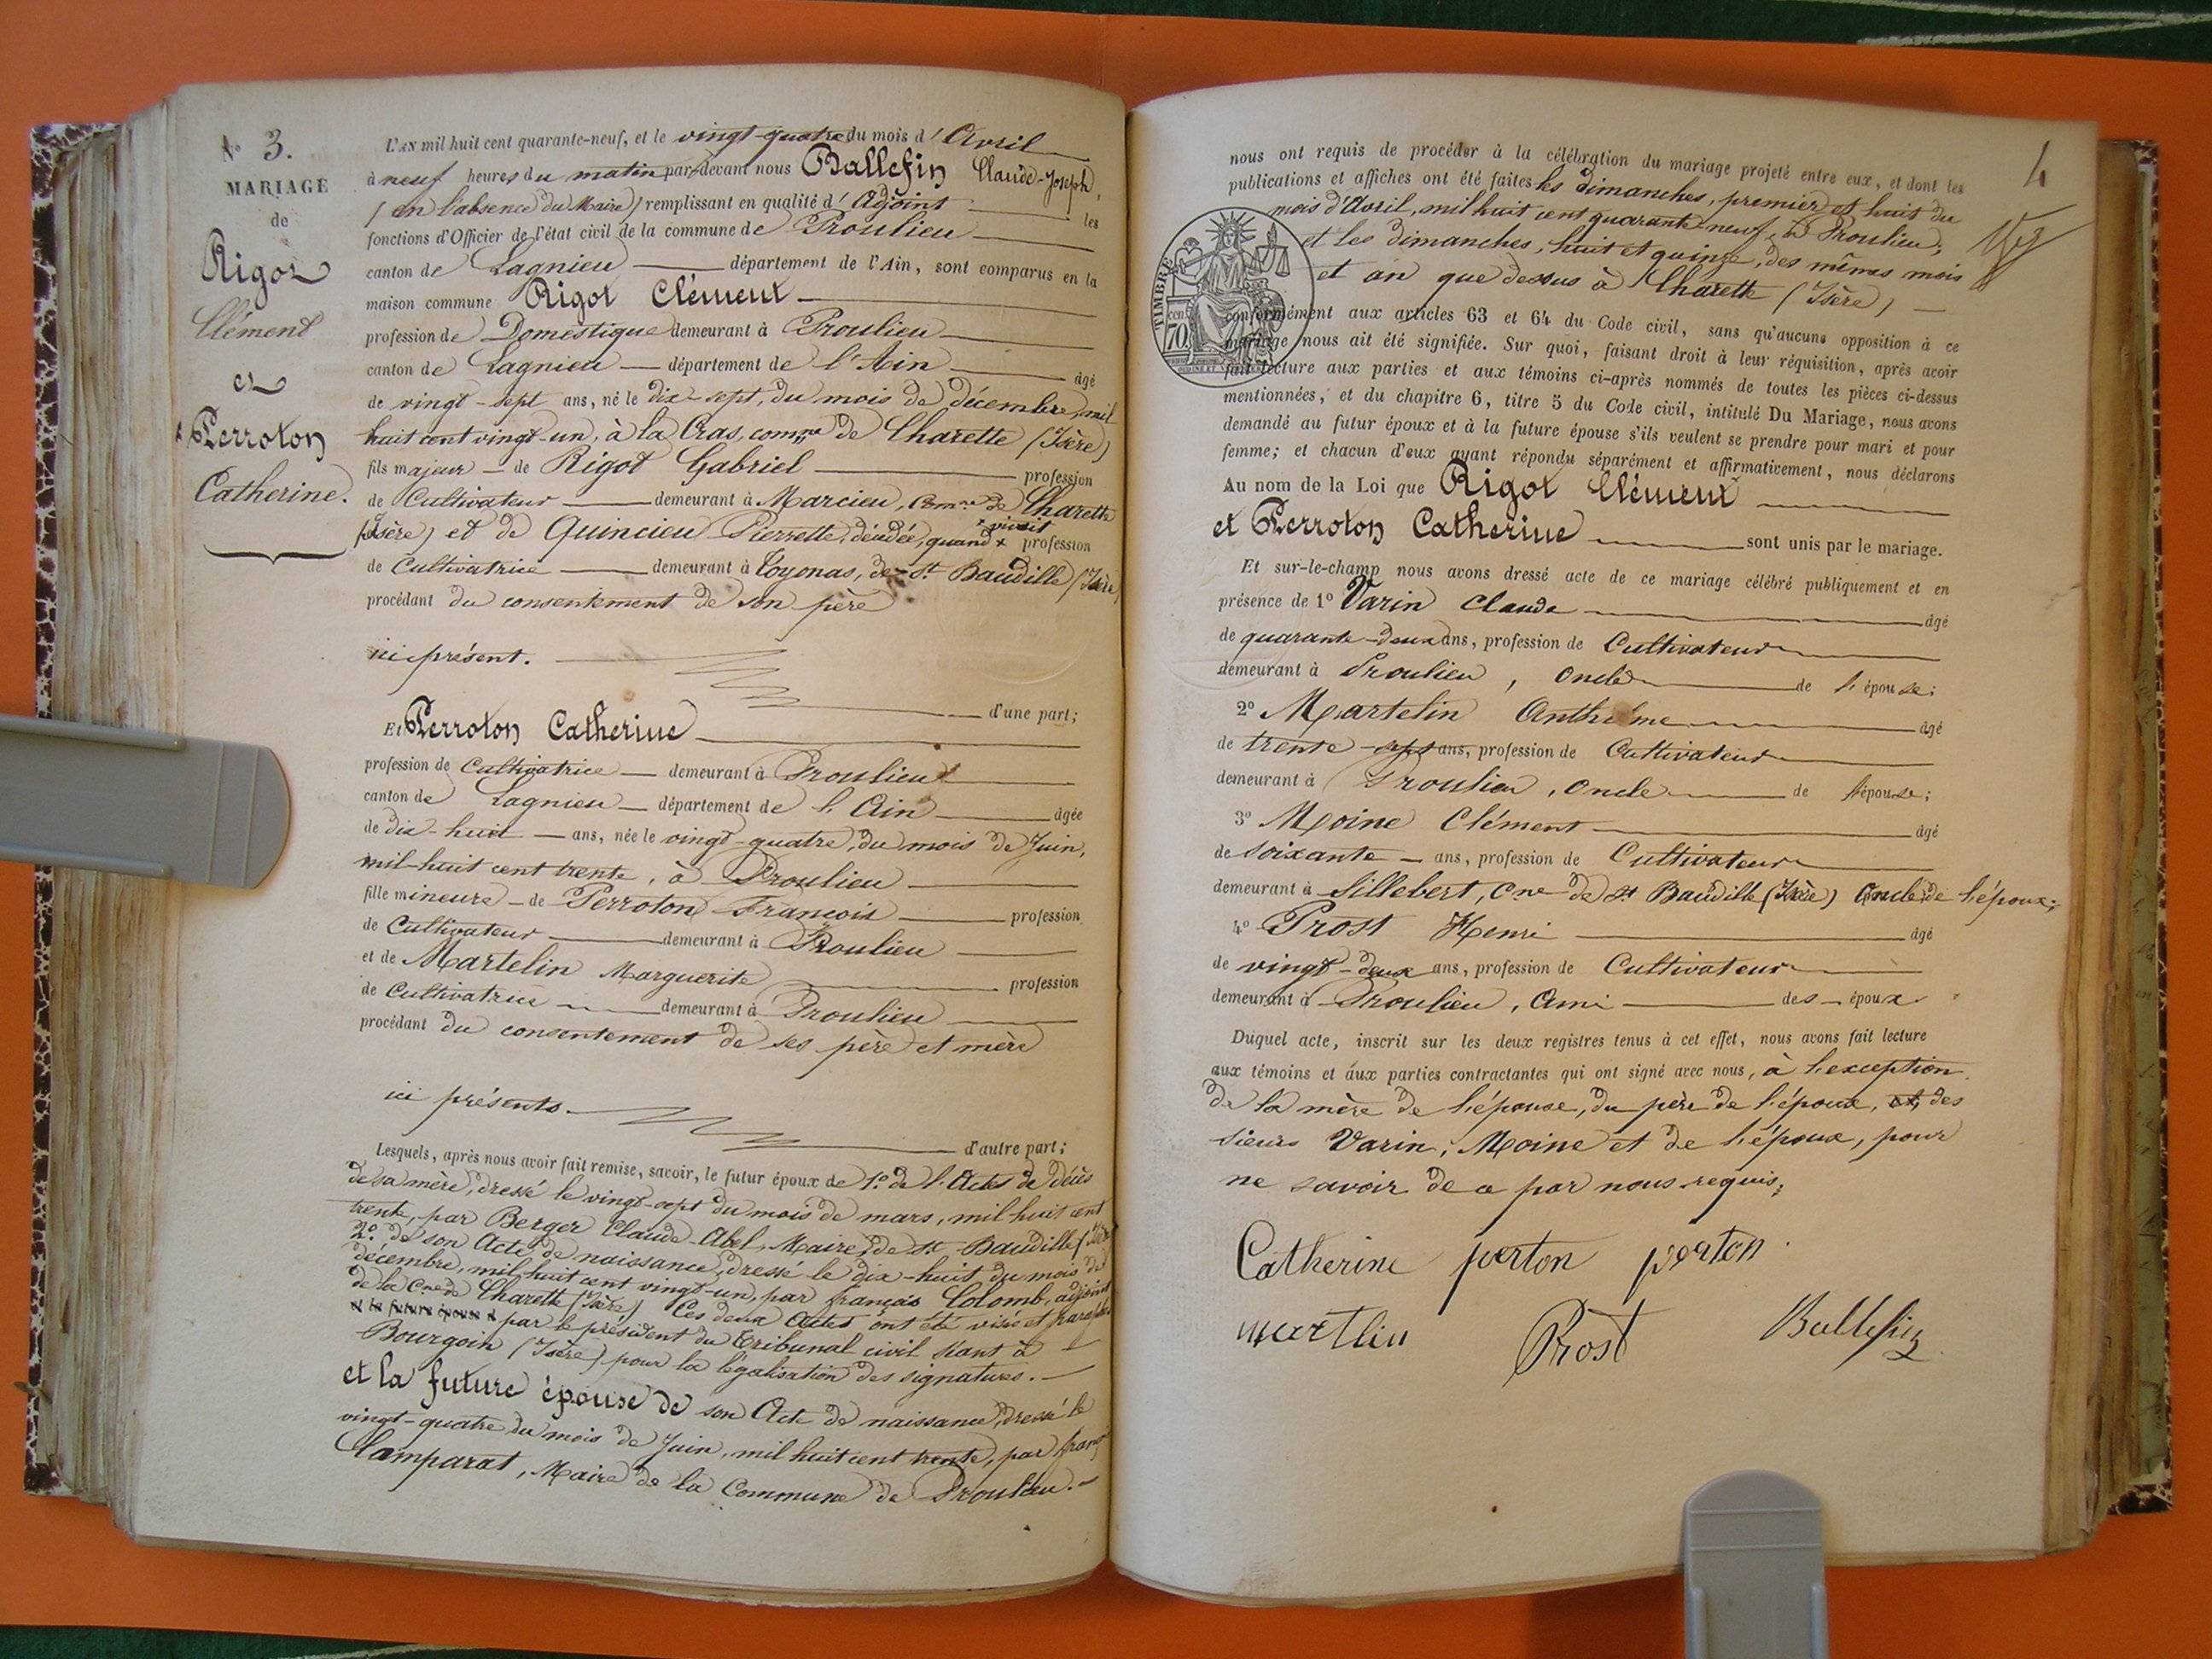 N° 3.
MARIAGE
de
Rigot
Clément
et
Perroton
Catherine.
L'AN mil huit cent quarante-neuf, et le vingt-quatre du mois d'Avril
à neuf heures du matin par-devant nous Ballefin Claude-Joseph,
(en l'absence du Maire) remplissant en qualité d'Adjoint les
fonctions d'Officier de l'état civil de la commune de Proulieu
canton de Lagnieu département de l'Ain, sont comparus en la
maison commune Rigot Clément
profession de Domestique demeurant à Proulieu
canton de Lagnieu département de l'Ain âgé
de vingt-sept ans, né le dix-sept, du mois de décembre, mil
huit cent vingt-un, à la Cras, comne de Charette (Isère)
fils majeur de Rigot Gabriel profession
de Cultivateur demeurant à Marcieu, comne de Charette
(Isère) et de Quincieu Pierrette, décédée, quand x vivait profession
de Cultivatrice demeurant à Toyonas, de St Baudille (Isère)
procédant du consentement de son père
ici présent.
d'une part;
Et Perroton Catherine
profession de Cultivatrice demeurant à Proulieu
canton de Lagnieu département de l'Ain âgée
de dix-huit ans, née le vingt-quatre, du mois de Juin,
mil-huit cent trente, à Proulieu
fille mineure de Perroton François profession
de Cultivateur demeurant à Proulieu
et de Martelin Marguerite profession
de Cultivatrice demeurant à Proulieu
procédant du consentement de ses père et mère
ici présents.
d'autre part;
Lesquels, après nous avoir fait remise, savoir, le futur époux de 1° de l'Actes de décès
de sa mère, dressé le vingt-sept du mois de mars, mil huit cent
trente, par Berger Claude-Abel, Maire, de St Baudille (Isère)
2° de son Acte de naissance, dressé le dix-huit du mois de
décembre, mil huit cent vingt-un, par françois Colomb, adjoint
de la Cne de Charette (Isère) Ces deux Actes ont été visés et paraphés
et la future épouse d par le président du Tribunal civil séant à
Bourgoin (Isère) pour la légalisation des signatures.
et la future épouse de son Acte de naissance, dressé le
vingt-quatre du mois de Juin, mil huit cent trente, par franç
Clamparat, Maire de la Commune de Proulieu.
4
nous ont requis de procéder à la célébration du mariage projeté entre eux, et dont les
publications et affiches ont été faites les dimanches, premier et huit du
mois d'Avril, mil huit cent quarante-neuf, à Proulieu;
et les dimanches, huit et quinze, des mêmes mois
et an que dessus à Charette (Isère)
TIMBRE
cen
70
conformément aux articles 63 et 64 du Code civil, sans qu'aucune opposition à ce
mariage nous ait été signifiée. Sur quoi, faisant droit à leur réquisition, après avoir
fait lecture aux parties et aux témoins ci-après nommés de toutes les pièces ci-dessus
mentionnées, et du chapitre 6, titre 5 du Code civil, intitulé Du Mariage, nous avons
demandé au futur époux et à la future épouse s'ils veulent se prendre pour mari et pour
femme; et chacun d'eux ayant répondu séparément et affirmativement, nous déclarons
Au nom de la Loi que Rigot Clément
et Perroton Catherine sont unis par le mariage.
Et sur-le-champ nous avons dressé acte de ce mariage célébré publiquement et en
présence de 1° Varin Claude âgé
de quarante-deux ans, profession de Cultivateur
demeurant à Proulieu, Oncle de l'épouse;
2° Martelin Anthelme âgé
de trente-sept ans, profession de Cultivateur
demeurant à Proulieu, Oncle de l'épouse;
3° Moine Clément âgé
de soixante ans, profession de Cultivateur
demeurant à Sillebert, Cne de St Baudille (Isère) Oncle de l'époux;
4° Prost Henri âgé
de vingt-deux ans, profession de Cultivateur
demeurant à Proulieu, Ami des époux
Duquel acte, inscrit sur les deux registres tenus à cet effet, nous avons fait lecture
aux témoins et aux parties contractantes qui ont signé avec nous, à l'exception
de la mère de l'épouse, du père de l'époux, et, des
sieurs Varin, Moine et de l'époux, pour
ne savoir de ce par nous requis;
Catherine perton perton
martlin Prost Ballefin